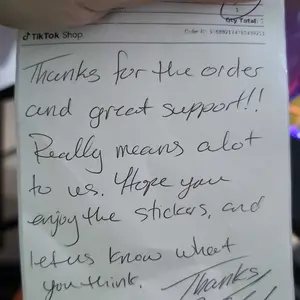 Qty Total:
TikTok Shop
Thanks for the order
and great support!!
Really means alot
to us. Hope you
enjoy the stickers, and
let us know what
you think. Thanks